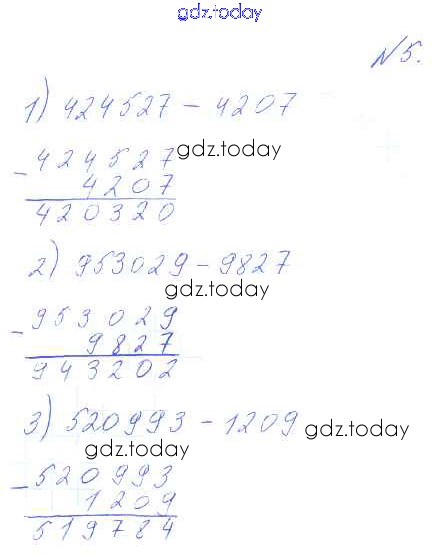 gdz.today
N5.
1) 424527 - 4207
- 424527
gdz.today
4207
420320
2) 953029 - 9827
gdz.today
- 953029
9827
943202
3) 520993 - 1209
gdz.today
gdz.today
- 520993
1209
519784